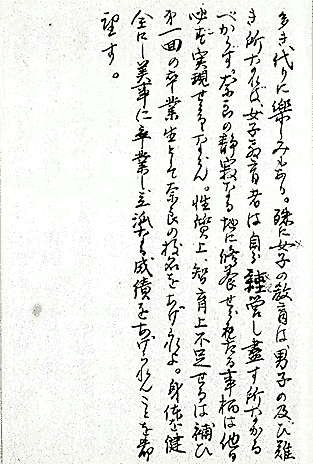 多き代りに樂しみもあり。殊に女子の教育は男子の及び難
き所なれば、女子教育者は自ら經營し盡す所なかる
べからず。奈良の静寂なる地に修養せられたる事柄は他日
必ず実現せらるゝならん。性質上、智育上不足せるは補ひ
第一回の卒業生として奈良の校名をあげられよ。身体を健
全にし美事に卒業し立派なる成績をあげられんことを希
望す。